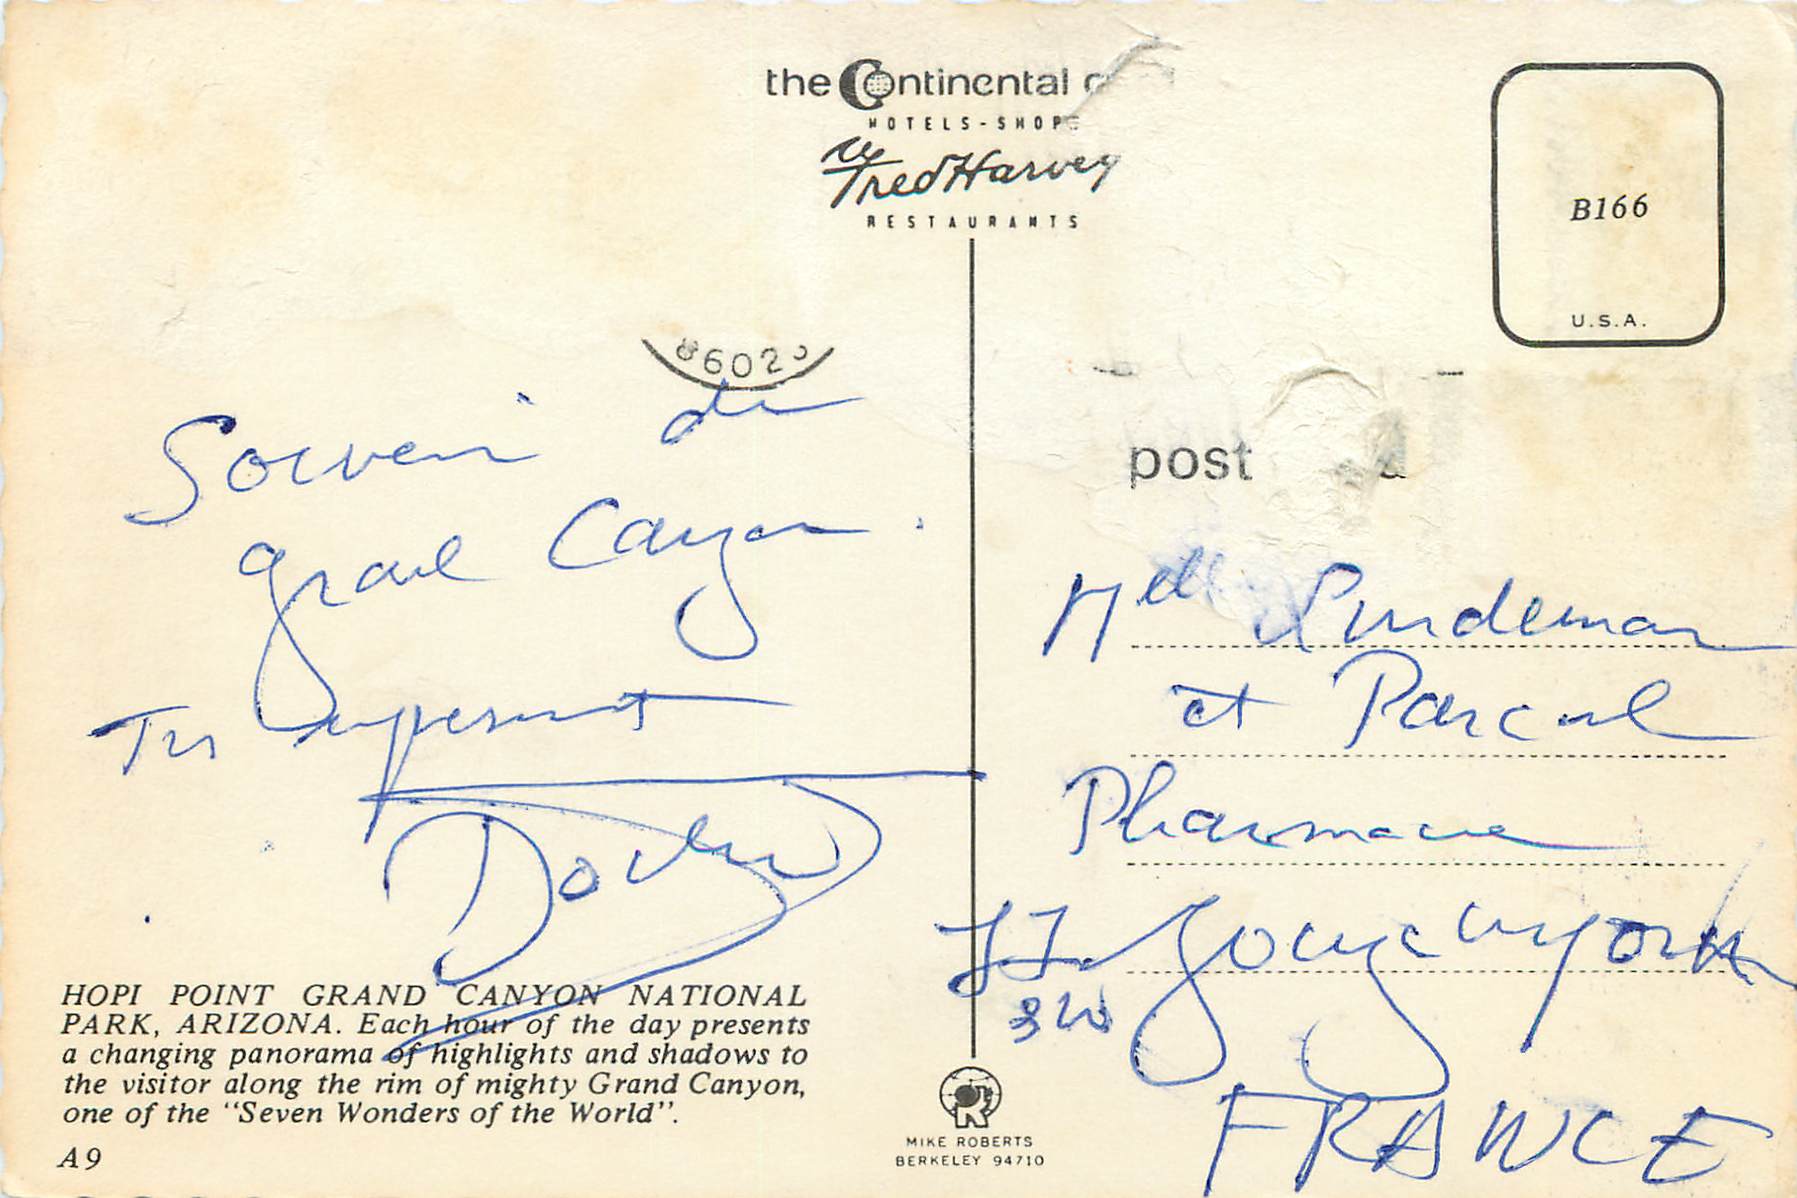 the Continental
HOTELS-SHOPS
Fred Harvey
RESTAURANTS
B166
U.S.A.
8602
Souvenir du
Grand Canyon.
post
Melle Lindeman
et Pascal
Pharmacie
77
320
FRANCE
HOPI POINT GRAND CANYON NATIONAL
PARK, ARIZONA. Each hour of the day presents
a changing panorama of highlights and shadows to
the visitor along the rim of mighty Grand Canyon,
one of the "Seven Wonders of the World".
A9
MIKE ROBERTS
BERKELEY 94710